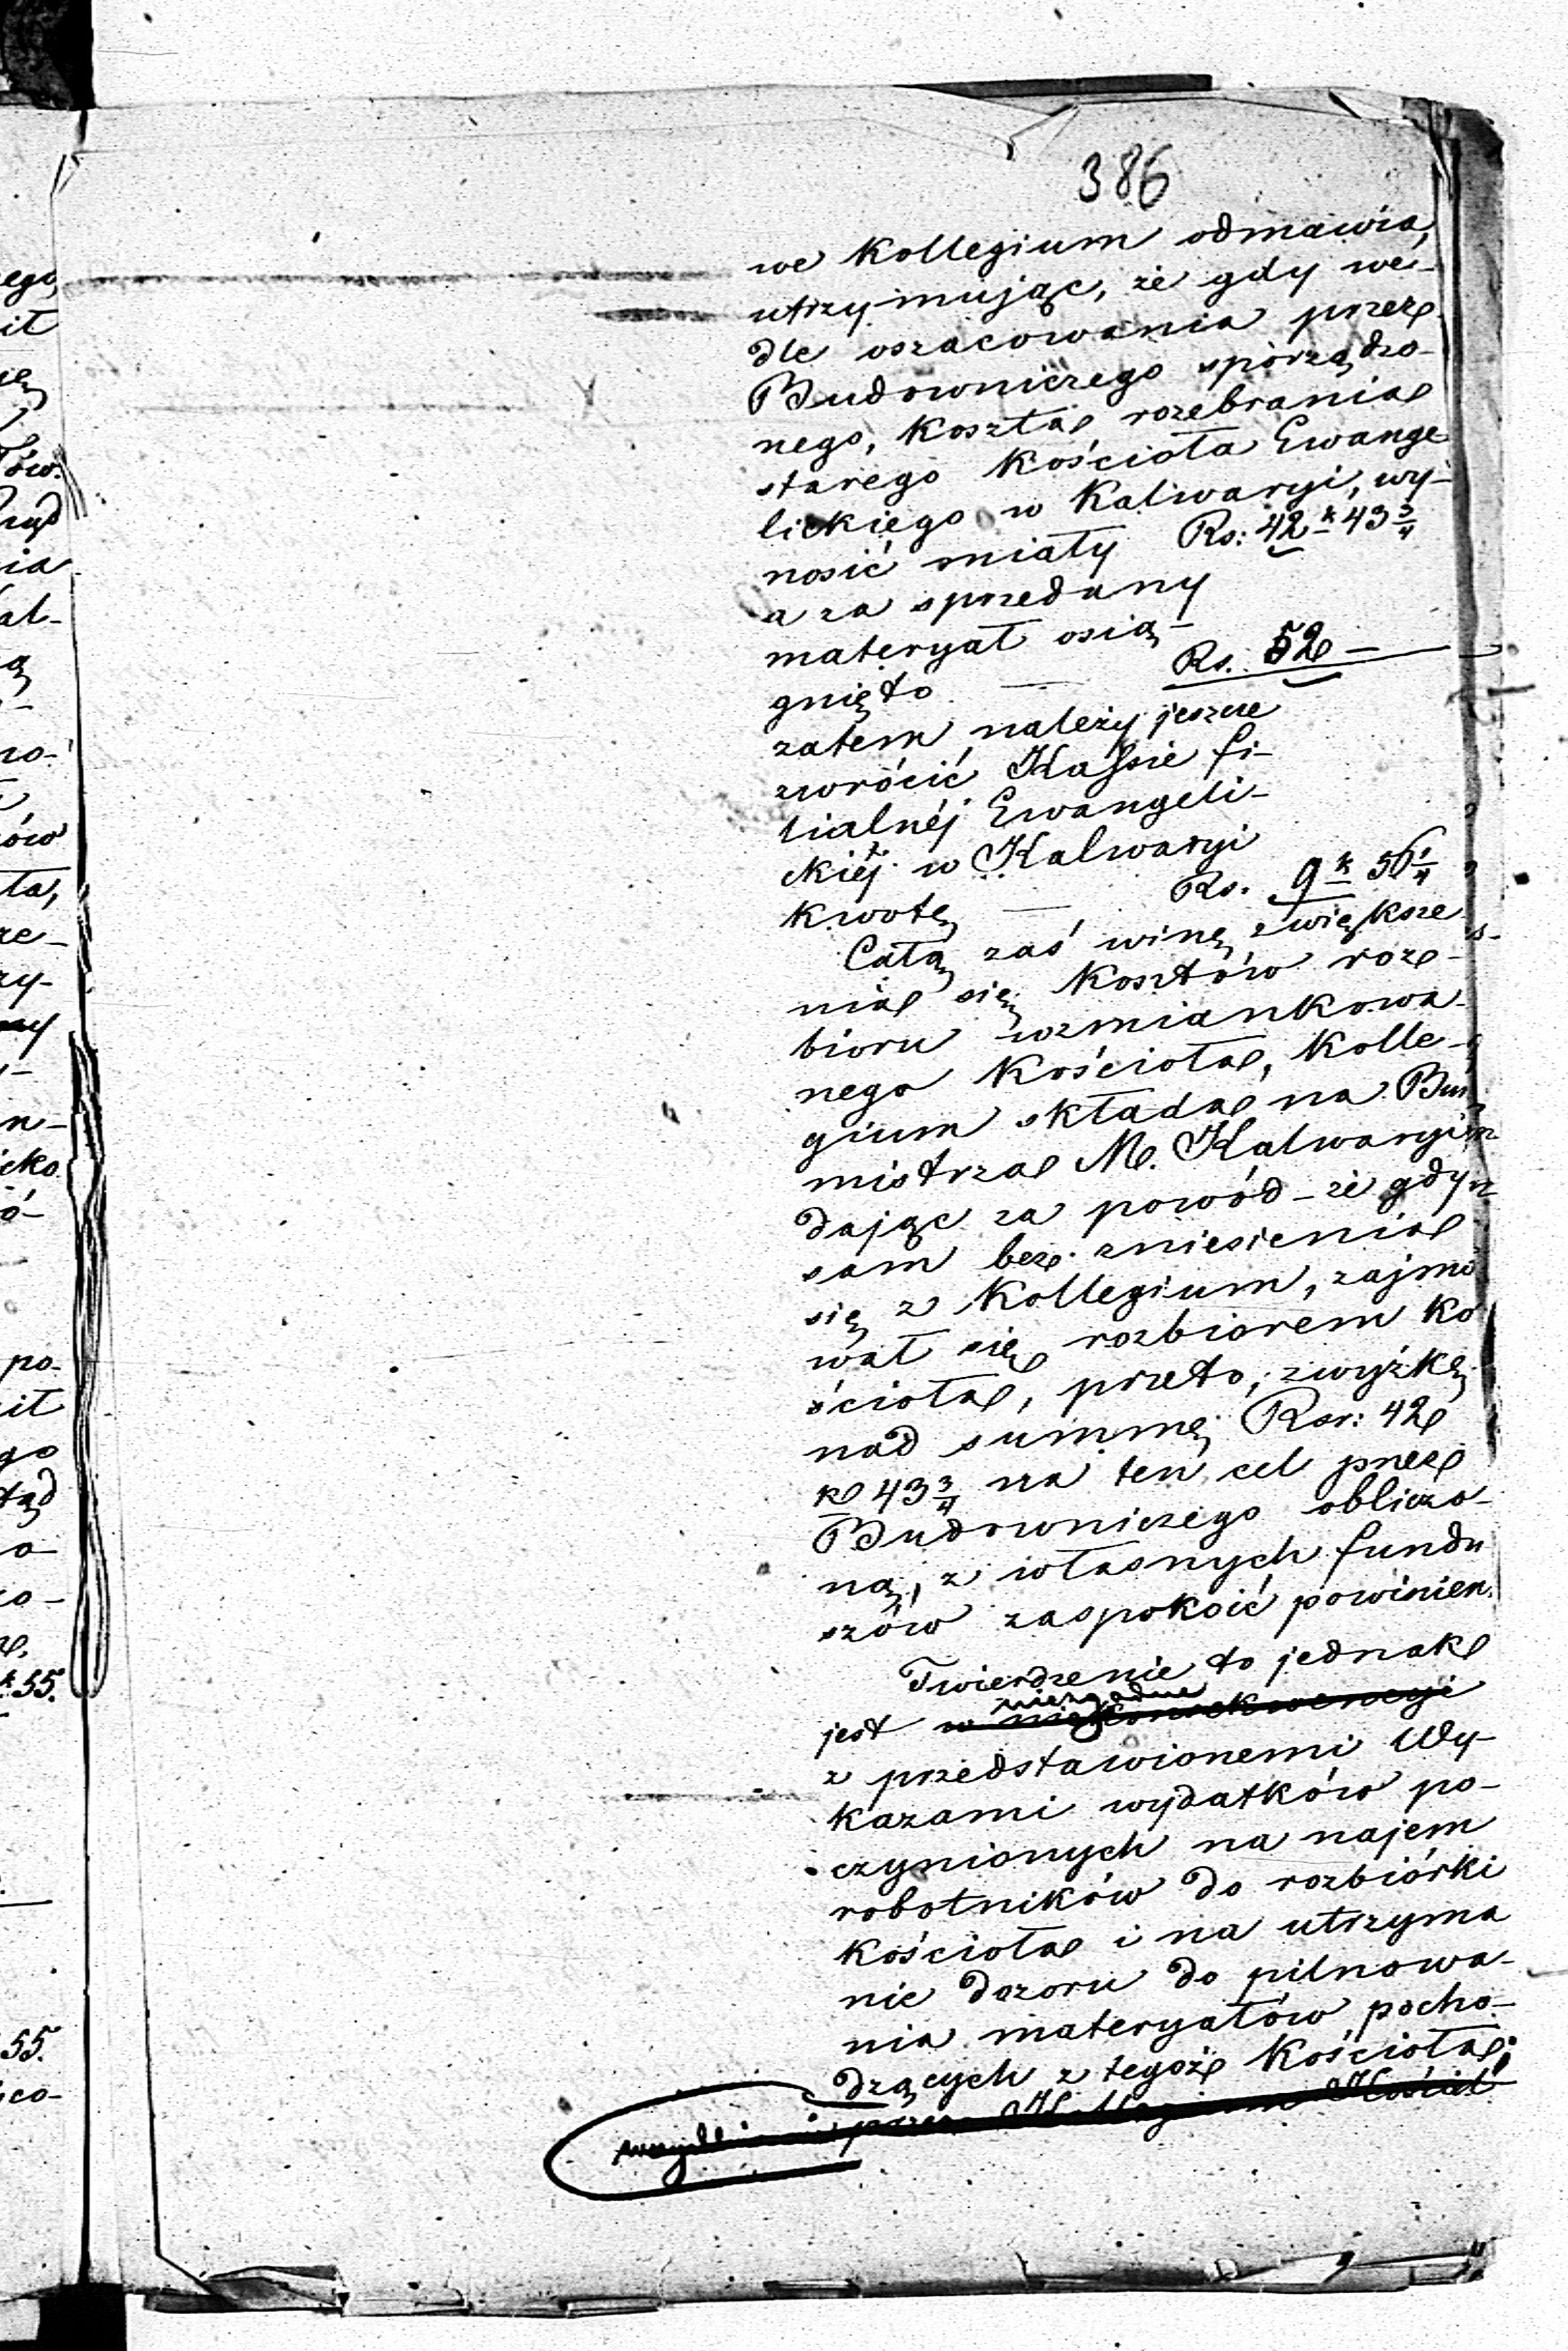 386
we Kollegium odmawia,
utrzymując, że gdy we-
dle oszacowania przez
Budowniczego sporządzo-
nego, koszta rozebrania
starego Kościoła Ewange
lickiego w Kalwaryi, wy-
nosić miały Rs: 42 k 43 3/4
a za sprzedany
materyał osią-
gnięto — Rs. 52 —
zatem należy jeszcze
zwrócić Kassie fi-
lialnéj Ewangeli-
ckiéj w Kalwaryi
kwotę — Rs. 9 k 56 1/4
Całą zaś winę zwiększe
nia się kosztów roz-
bioru wzmiankowa-
nego Kościoła, Kolle-
gium składa na Bur
mistrza M. Kalwaryi
dając za powód – że gdy
sam bez zniesienia
się z Kollegium, zajmo
wał się rozbiorem Ko
ścioła, przeto, zwyżkę
nad summę Rsr: 42
k 43 3/4 na ten cel przez
Budowniczego obliczo-
ną, z własnych fundu
szów zaspokoić powinien.
Twierdzenie to jednak
niezgodne
jest w
z przedstawionemi Wy-
kazami wydatków po-
czynionych na najem
robotników do rozbiórki
kościoła i na utrzyma
nie dozoru do pilnowa-
nia materyałów pocho-
dzących z tegoż Kościoła;
przez Kollegium Kościel
ego,
ił
ów.
ia
al-
ą
no-
ów
ła,
ze-
zy-
n-
cko
ó-
po-
ił
go
tąd
o-
k 55.
55.
co-